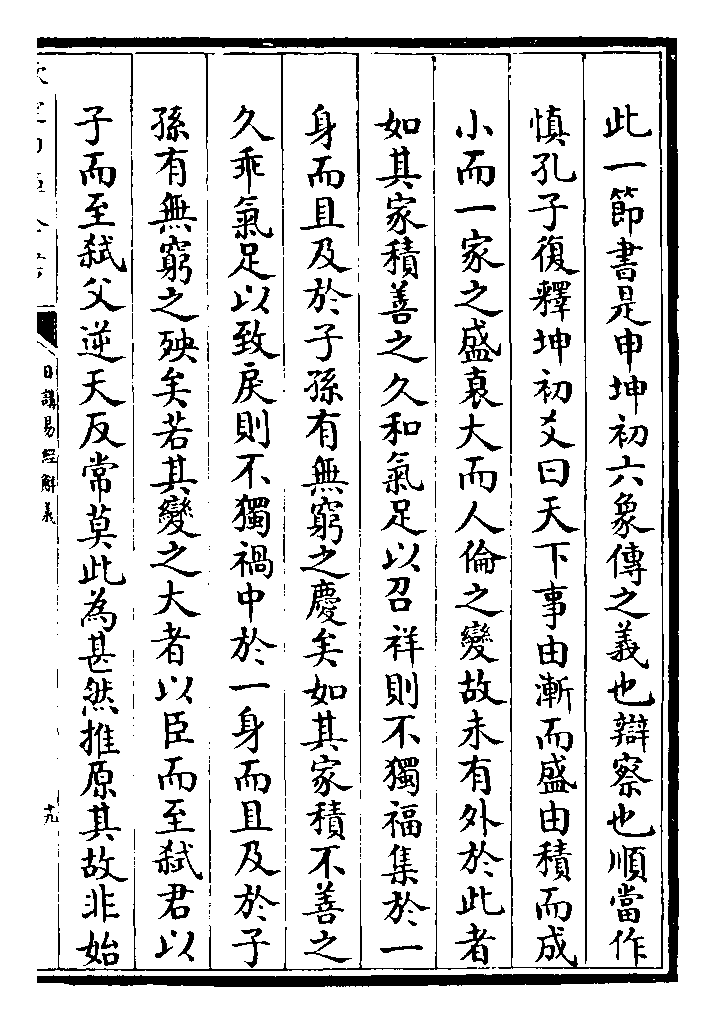 此一節書是申坤初六象傳之義也辯察也順當作
慎孔子復釋坤初爻曰天下事由漸而盛由積而成
小而一家之盛衰大而人倫之變故未有外於此者
如其家積善之久和氣足以召祥則不獨福集於一
身而且及於子孫有無窮之慶矣如其家積不善之
久乖氣足以致戾則不獨禍中於一身而且及於子
孫有無窮之殃矣若其變之大者以臣而至弒君以
子而至弒父逆天反常莫此為甚然推原其故非始
日講易經解義
十九